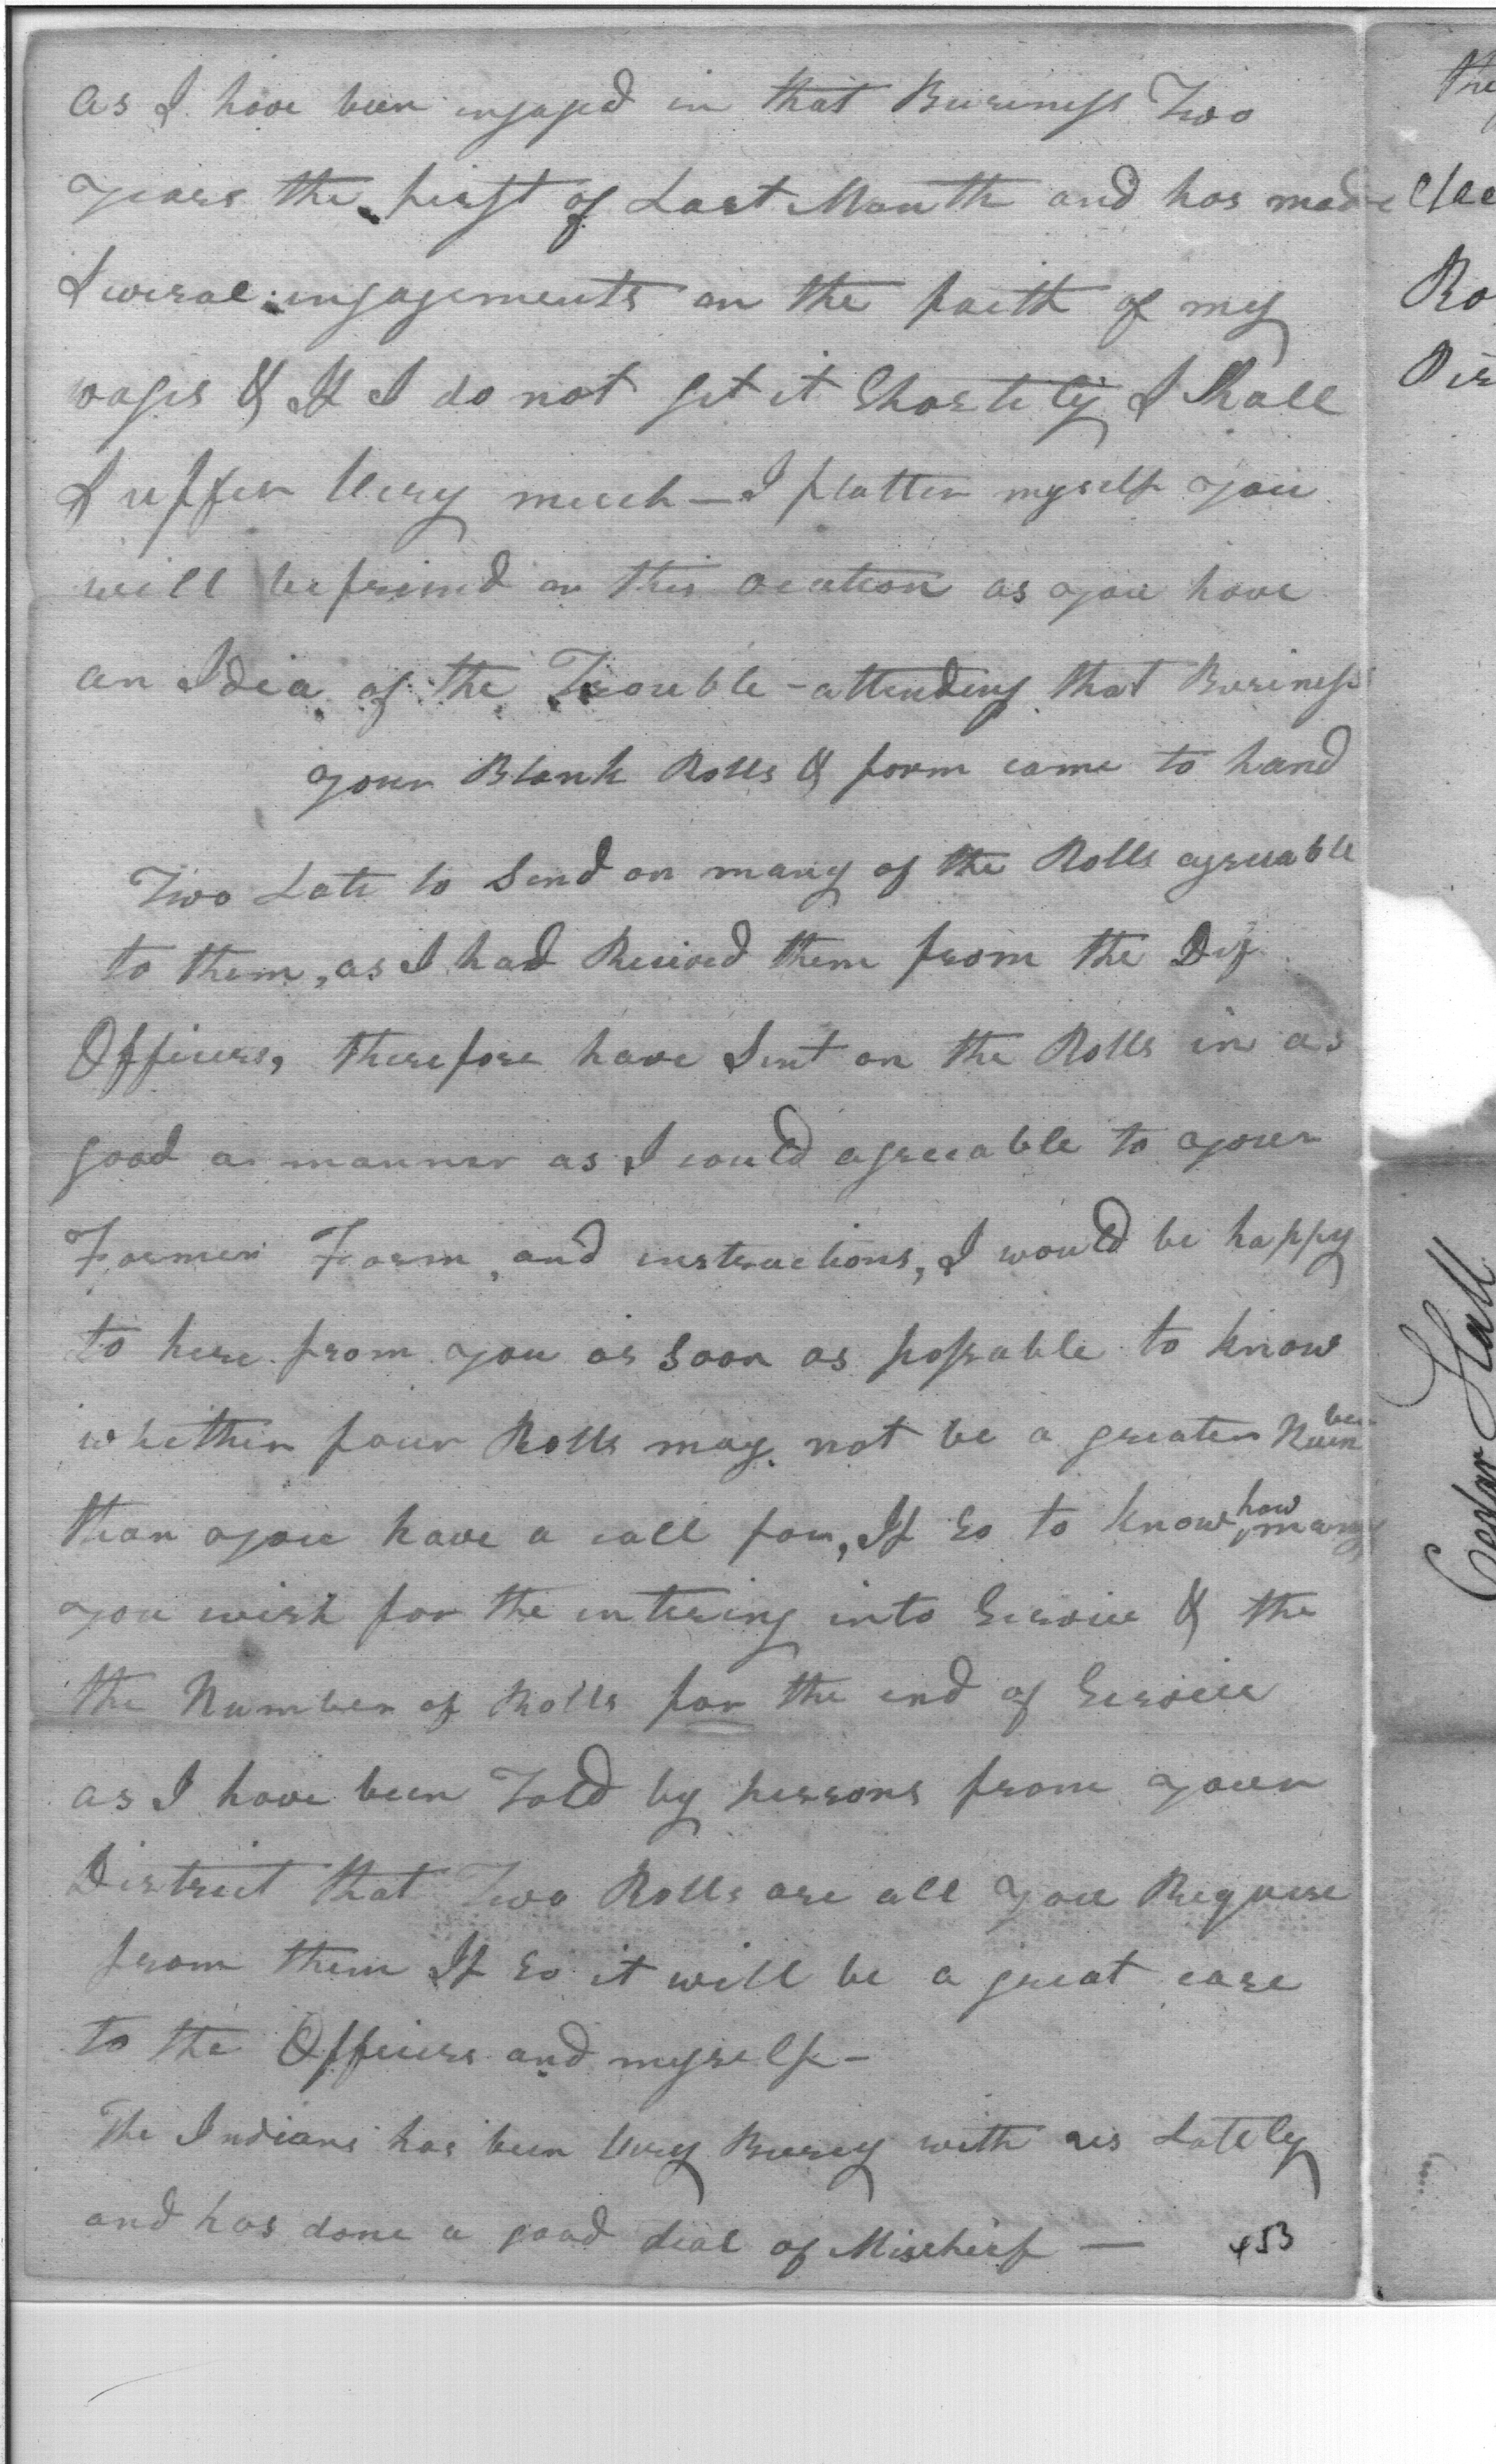 as I have been ingaged in that Business Two
years the first of Last Month and has made
Several ingagements on the faith of my
wages & If I do not get it Shortely I Shall
Suffer Very much — I flatter myself you
will befriend on this ocation as you have
an Idea of the Trouble - attending that Business
your Blank Rolls & form came to hand
Two Late to Send on many of the Rolls agreeable
to them, as I had Recived them from the Dif
Officers, therefore have Sent on the Rolls in as
good a manner as I could agreeable to your
Former Form, and instructions, I would be happy
to here from you as Soon as possable to know
whether four Rolls may not be a greater Number
than you have a call for, If so to know how many
you wish for the intering into Service & the
the Number of Rolls for the end of Service
as I have been Told by persons from your
District that Two Rolls are all you Requere
from them If so it will be a great ease
to the Officers and myself -
The Indians has been Very Busey with us Lately
and has done a good deal of Mischief —
453
Ro
Cedar Hall